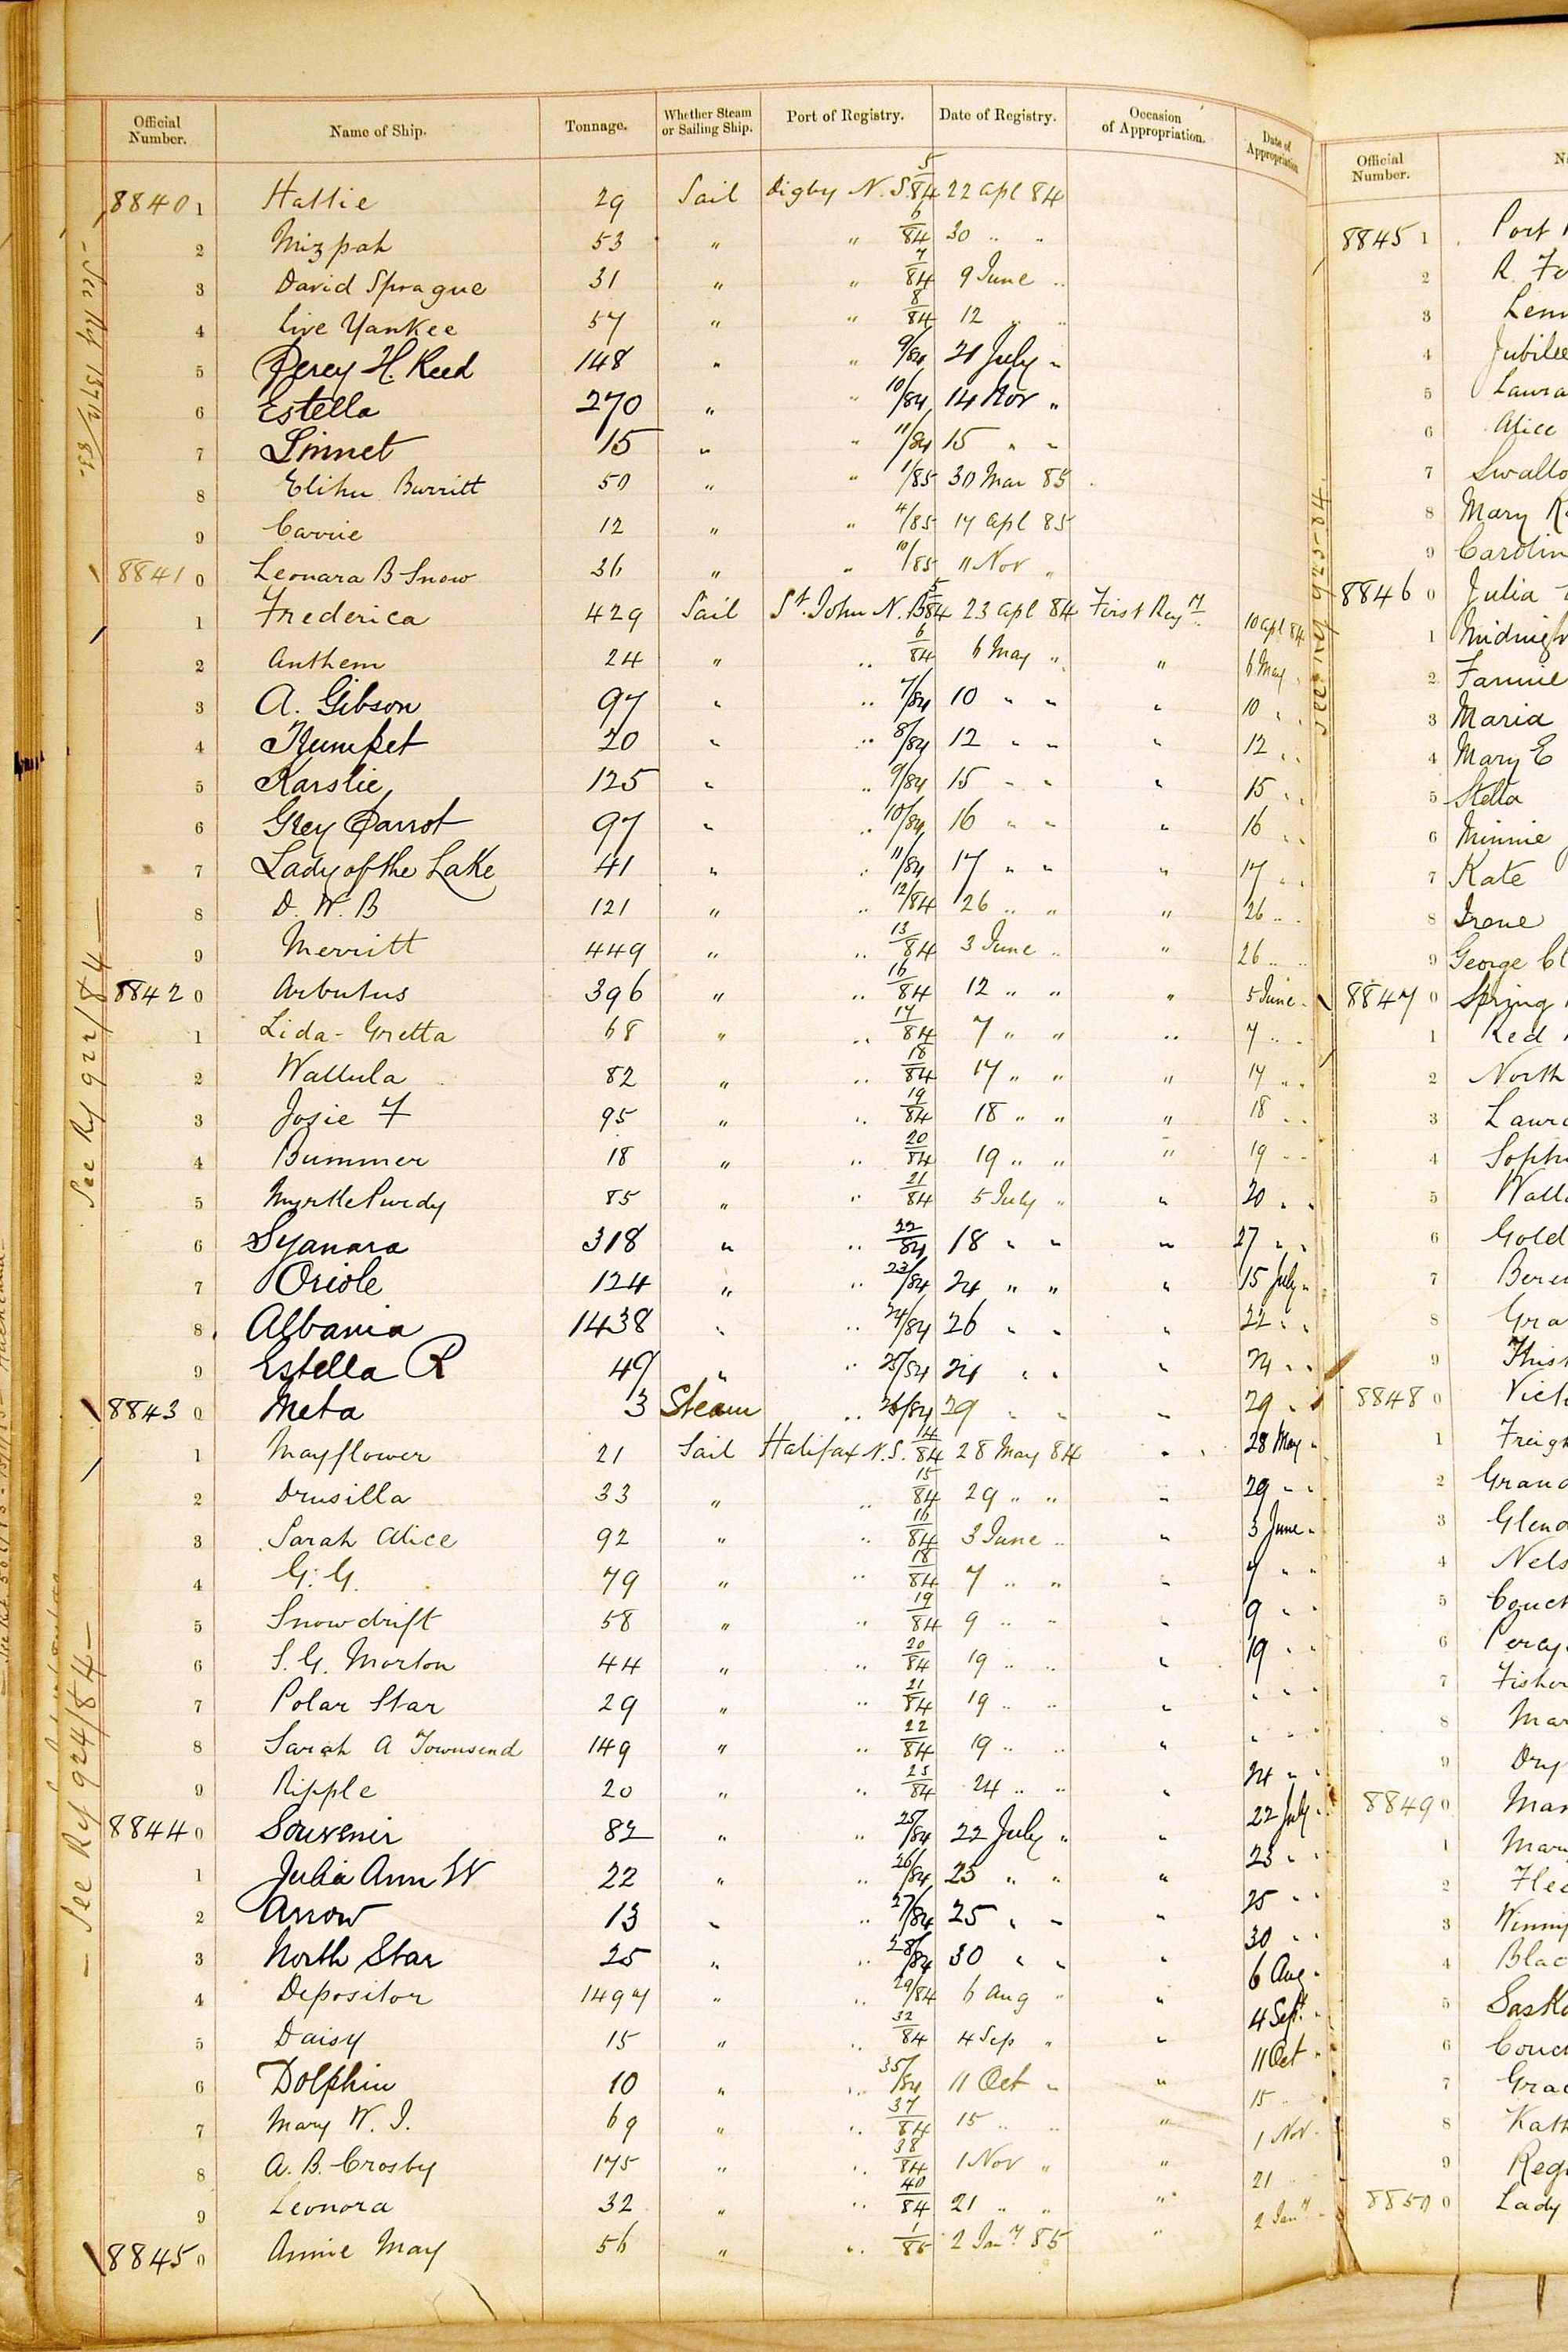 Official Number. Name of Ship. Tonnage. Whether Steam or Sailing Ship. Port of Registry. Date of Registry. Occasion of Appropriation. Date of Appropriation
8840 1 Hattie 29 Sail Digby N.S. 5/84 22 Apl 84
2 Mizpah 53 " " 6/84 30 " "
3 David Sprague 31 " " 7/84 9 June "
4 Live Yankee 57 " " 8/84 12 " "
5 Percy H. Reed 148 " " 9/84 21 July "
6 Estella 270 " " 10/84 14 Nov "
7 Linnet 15 " " 11/84 15 " "
8 Elihu Burritt 50 " " 1/85 30 Mar 85
9 Carrie 12 " " 4/85 17 Apl 85
8841 0 Leonara B Snow 36 " " 10/85 11 Nov "
1 Frederica 429 Sail St. John N.B. 5/84 23 Apl 84 First Regy 10 Apl 84
2 Anthem 24 " " 6/84 6 May " " 6 May "
3 A. Gibson 97 " " 7/84 10 " " " 10 " "
4 Trumpet 20 " " 8/84 12 " " " 12 " "
5 Karslie 125 " " 9/84 15 " " " 15 " "
6 Grey Parrot 97 " " 10/84 16 " " " 16 " "
7 Lady of the Lake 41 " " 11/84 17 " " " 17 " "
8 D. W. B 121 " " 12/84 26 " " " 26 " "
9 Merritt 449 " " 13/84 3 June " " 26 " "
8842 0 Arbutus 396 " " 16/84 12 " " " 5 June "
1 Lida-Gretta 68 " " 17/84 7 " " " 7 " "
2 Wallula 82 " " 18/84 17 " " " 17 " "
3 Josie F 95 " " 19/84 18 " " " 18 " "
4 Bummer 18 " " 20/84 19 " " " 19 " "
5 Myrtle Purdy 85 " " 21/84 5 July " " 20 " "
6 Syanara 318 " " 22/84 18 " " " 27 " "
7 Oriole 124 " " 23/84 24 " " " 15 July "
8 Albania 1438 " " 24/84 26 " " " 22 " "
9 Estella R 49 " " 25/84 24 " " " 24 " "
8843 0 Meta 3 Steam " 26/84 29 " " " 29 "
1 Mayflower 21 Sail Halifax N.S. 14/84 28 May 84 " 28 May "
2 Drusilla 33 " " 15/84 29 " " " 29 " "
3 Sarah Alice 92 " " 16/84 3 June " " 3 June "
4 G. G. 79 " " 18/84 7 " " " 7 " "
5 Snowdrift 58 " " 19/84 9 " " " 9 " "
6 S. G. Morton 44 " " 20/84 19 " " " 19 " "
7 Polar Star 29 " " 21/84 19 " " " " " "
8 Sarah A Townsend 149 " " 22/84 19 " " " " " "
9 Ripple 20 " " 23/84 24 " " " 24 " "
8844 0 Souvenir 82 " " 25/84 22 July " " 22 July "
1 Julia Ann W 22 " " 26/84 23 " " " 23 " "
2 Arrow 13 " " 27/84 25 " " " 25 " "
3 North Star 25 " " 28/84 30 " " " 30 " "
4 Depositor 1497 " " 29/84 6 Aug " " 6 Aug "
5 Daisy 15 " " 32/84 4 Sep " " 4 Sept "
6 Dolphin 10 " " 35/84 11 Oct " " 11 Oct "
7 Mary W. J. 69 " " 37/84 15 " " " 15 "
8 A. B. Crosby 175 " " 38/84 1 Nov " " 1 Nov "
9 Leonora 32 " " 40/84 21 " " " 21
8845 0 Annie May 56 " " 1/85 2 Jany 85 " 2 Jany "
See Ry 922/84
See Ry 924/84
See Ry 923-84
Official Number.
8845 1 Port
2 R.
3
4 Jubilee
5 Laura
6 Alice
7
8 Mary
9
8846 0 Julia
1
2 Fannie
3 Maria
4 Mary E
5 Stella
6 Minnie
7 Kate
8 Irene
9 George
8847 0 Spring
1 Red
2 North
3
4
5
6 Gold
7
8
9
8848 0
1
2
3
4
5
6 Percy
7
8
9 Dry
8849 0
1
2
3
4
5
6
7
8
9
8850 0 Lady